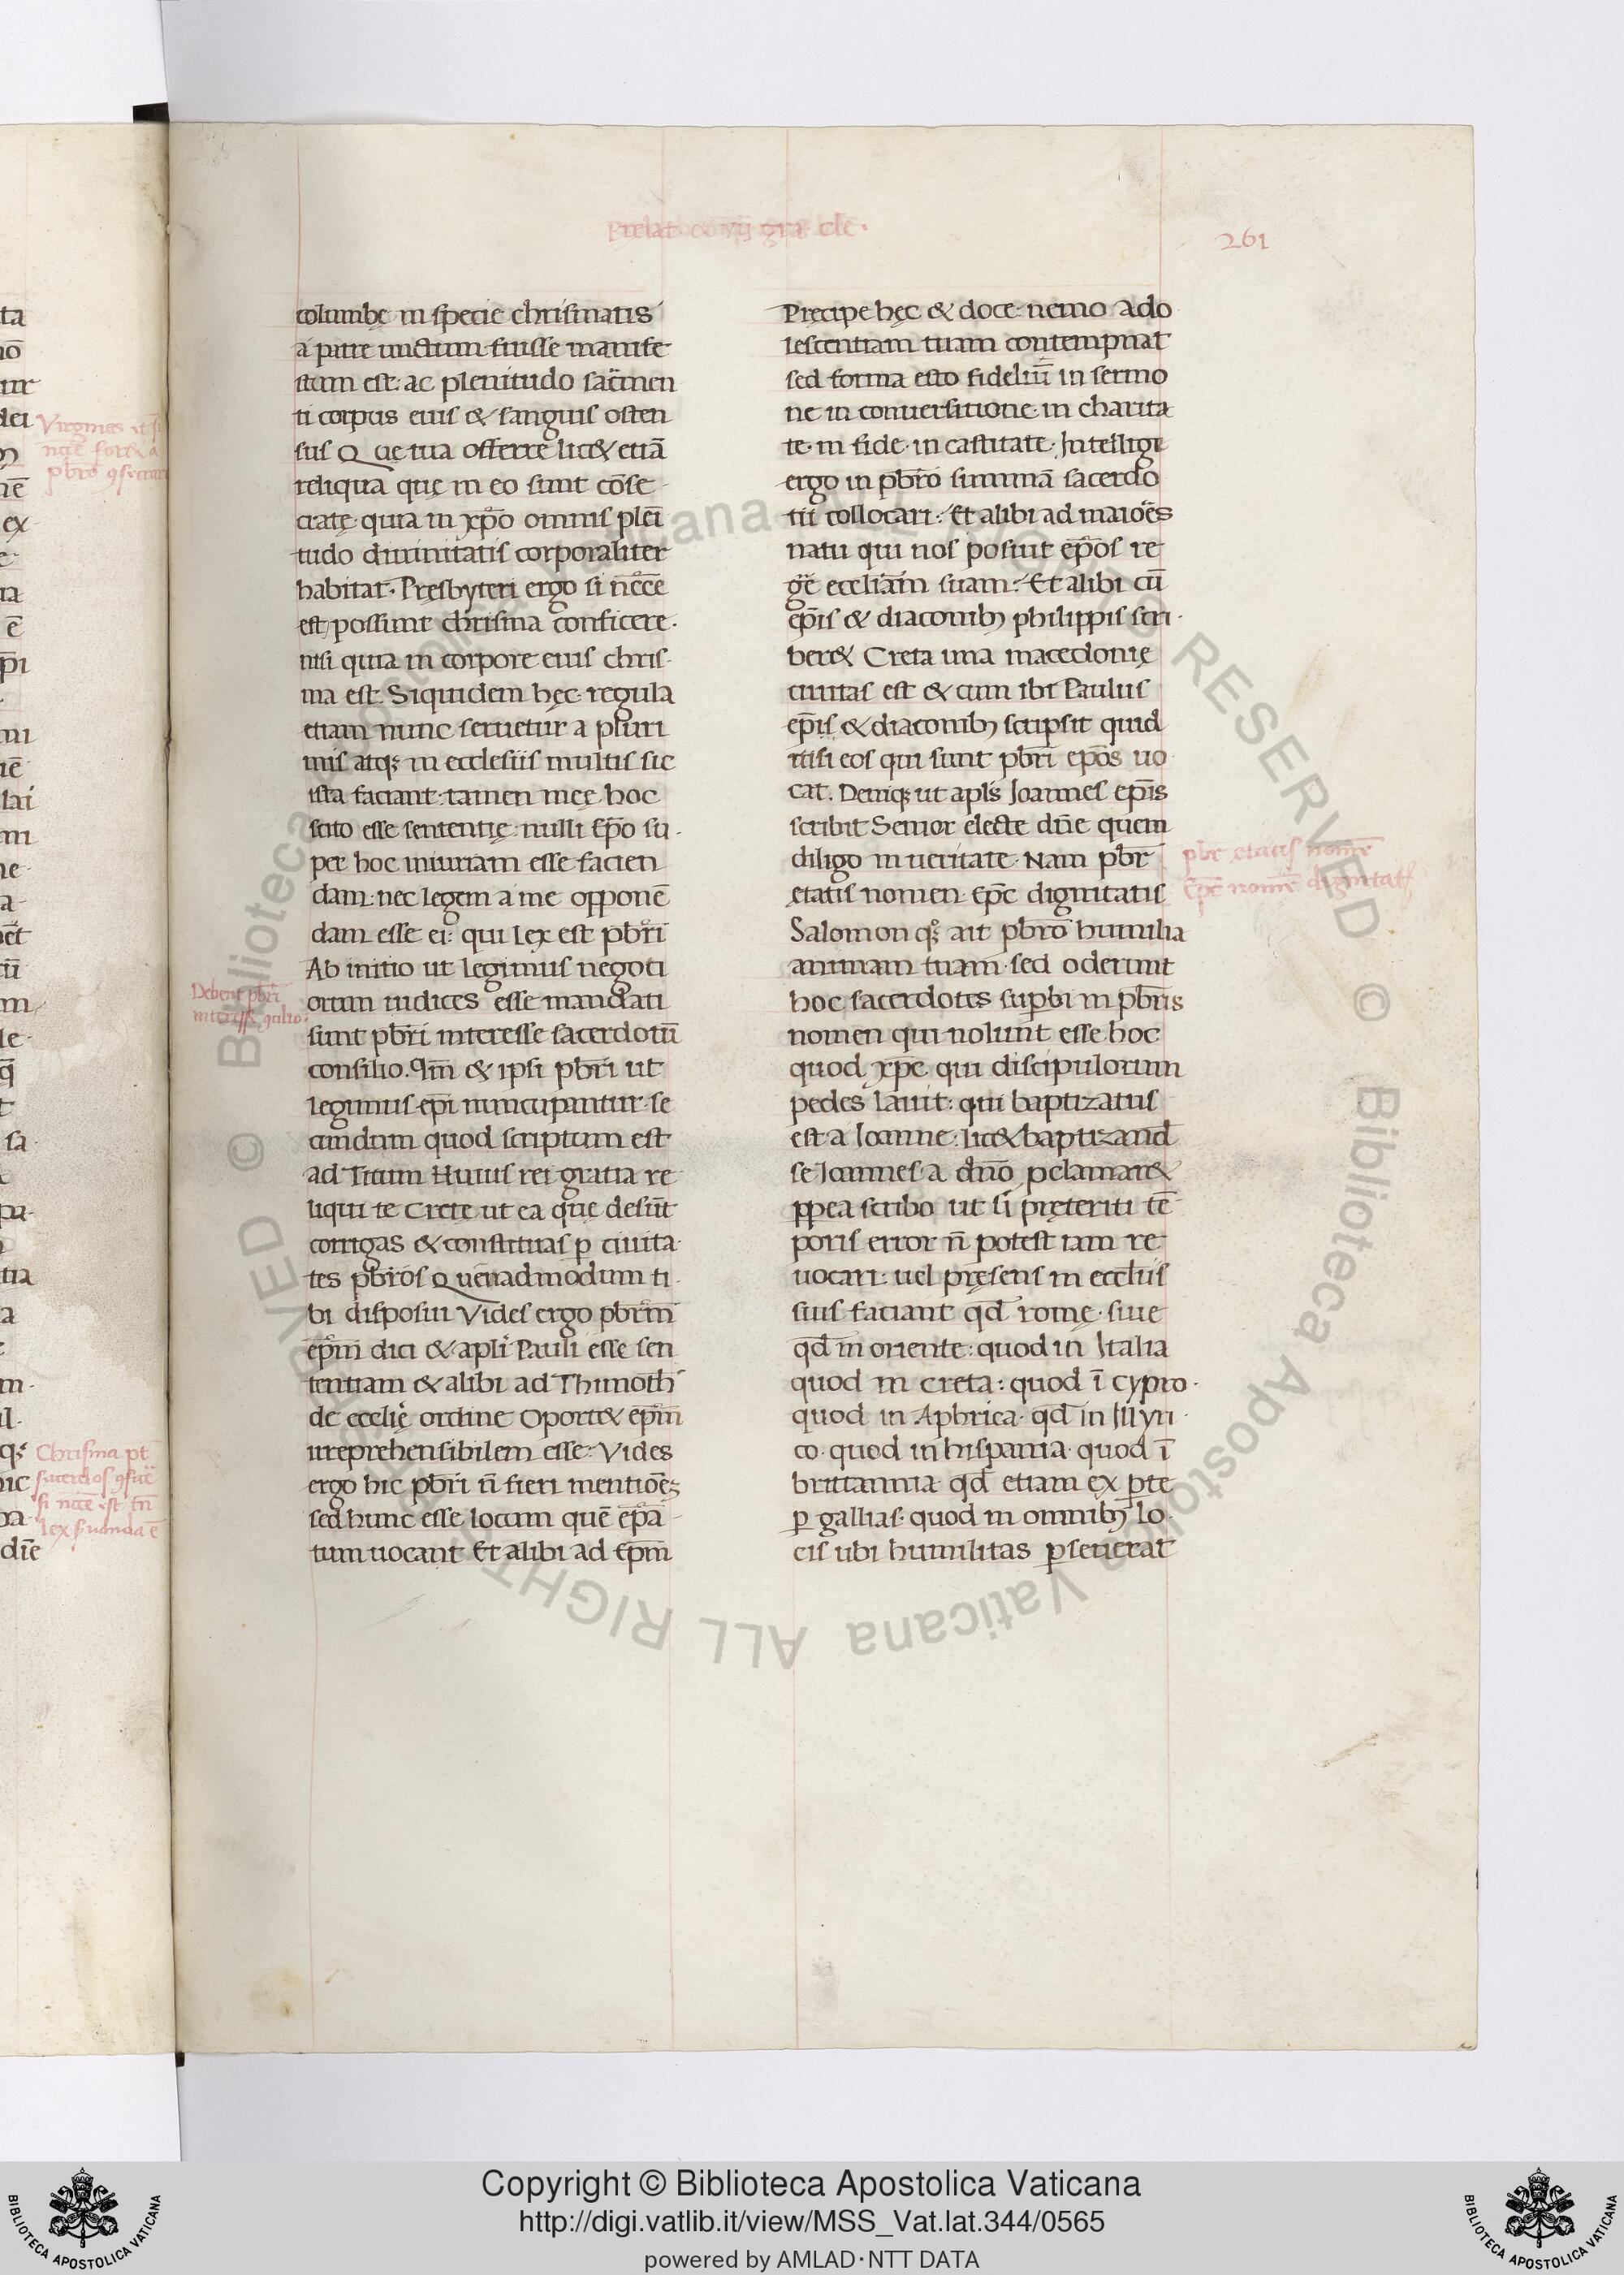 Prelat. & vij gra cle.
261
columbę in specie chrismatis
a patre unctum fuisse manife
stum est: ac plenitudo sac̄men
ti corpus eius & sanguis osten
sus Quę tua offerre lic& etiā
reliqua quę in eo sunt cōse
cratę quia in xp̄o omnis plēi
tudo diuinitatis corporaliter
habitat. Pręsbyteri ergo si nēcē
est possunt chrisma conficere.
nisi quia in corpore eius chris
ma est. Siquidem hęc regula
etiam nunc seruetur a pluri
mis atq; in ecclesiis multis sic
ista faciant: tamen meę hoc
scito esse sententię: nulli ep̄o su
per hoc iniuriam esse facien
dam: nec legem a me opponē
dam esse ei: qui lex est pb̄ri
Ab initio ut legimus negoti
orum iudices esse mandati
sunt pb̄ri interesse sacerdotū
consilio. Qm̄ & ipsi pb̄ri ut
legimus ep̄i nuncupantur se
cundum quod scriptum est
ad Titum Huius rei gratia re
liqui te Cretę ut ea quę desūt
corrigas & constituas p̱ ciuita
tes pb̄ros Quēnadmodum ti
bi disposui Vides ergo pb̄rm
ep̄m dici & apl̄i Pauli esse sen
tentiam & alibi ad Thimoth̄
de eccl̄ię ordine Oport& ep̄m
irreprehensibilem esse: Vides
ergo hic pb̄ri n̄ fieri mentiōēz
sed hunc esse locum quē ep̄a
tum uocant Et alibi ad Ep̄m
Debent pb̄ri
interesse ɔsilio.
Pręcipe hęc & doce: nemo ado
lescentiam tuam contempnat
sed forma esto fideliū in sermo
ne in conuersatione in charita
te. in fide. in castitate. Intellige
ergo in pb̄ro summā sacerdo
tii collocari: Et alibi ad maiōēs
natu qui nos posuit ep̄os re
gē eccl̄iam suam: Et alibi cū
ep̄is & diaconibꝫ philippis scri
ber& Creta una macedonię
ciuitas est & cum ibi Paulus
ep̄is & diaconibꝫ scripsit quid
nisi eos qui sunt pb̄ri ep̄os uo
cat. Deniq; ut apl̄s Joannes ep̄is
scribit Senior electe dn̄e quem
diligo in ueritate. Nam pb̄r
ętatis nomen. Ep̄c dignitatis
Salomon q; ait pb̄ro humilia
animam tuam. sed oderunt
hoc sacerdotes sup̱bi in pb̄ris
nomen qui nolunt esse hoc
quod xp̄c qui discipulorum
pedes lauit: qui baptizatus
est a Joanne: lic& baptizand̄
se Joannes a dn̄o p̱clamar&
pp̱ea scribo ut si pręteriti tē
poris error n̄ potest iam re
uocari: uel pręsens in eccl̄iis
suis faciant qd̄ romę. siue
qd̄ in oriente: quod in Italia
quod in creta: quod ī cypro.
quod in Aphrica. qd̄ in Illyri
co. quod in hispania. quod ī
brittannia. qd̄ etiam ex p̱te
p̱ gallias. quod in omnibꝫ lo
cis ubi humilitas p̱seuerat
pb̄r etatis nomē
Ep̄c nomē dignitatis
Copyright © Biblioteca Apostolica Vaticana
http://digi.vatlib.it/view/MSS_Vat.lat.344/0565
powered by AMLAD·NTT DATA